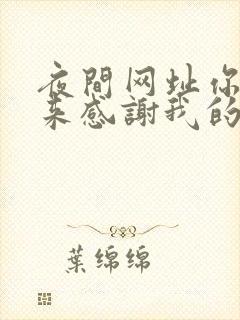 夜間网址你
来感謝我的
葉绵绵